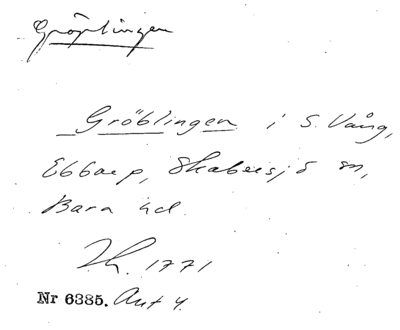 Gröplingen
Gröblingen i S. Vång,
Ebbarp, Skabersjö sn,
Bara hd.
Zh. 1771
Nr 6385. Akt 4.